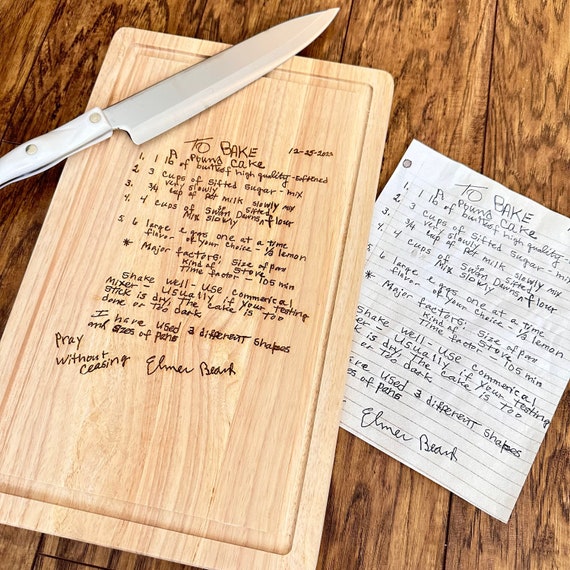 TO BAKE 12-25-2023
A Pound Cake
1. 1 lb of butter high quality - softened
2. 3 cups of sifted sugar - mix
very slowly
3. 3/4 cup of Pet milk slowly mix
4. 4 cups of Swan Downs flour
sifted
Mix slowly
5. 6 large eggs one at a time
flavor of your choice - 1/2 lemon
* Major factors: Size of pan
Kind of Stove
Time factor - 105 min
Shake well - Use commerical
Mixer - Usually if your testing
stick is dry. The cake is too
done or too dark
I have used 3 different shapes
and sizes of pans
Pray
without
ceasing
Elmer Beard
TO BAKE
A Pound Cake
1. 1 lb of butter high quality
2. 3 cups of sifted sugar - mix
very slowly
3. 3/4 cup of Pet milk slowly mix
4. 4 cups of Swan Downs flour
sifted
Mix slowly
5. 6 large eggs one at a time
flavor of your choice - 1/2 lemon
* Major factors: Size of pan
Kind of Stove
Time factor - 105 min
Shake well - Use commerical
Usually if your testing
is dry. The cake is too
or too dark
used 3 different shapes
sizes of pans
Elmer Beard